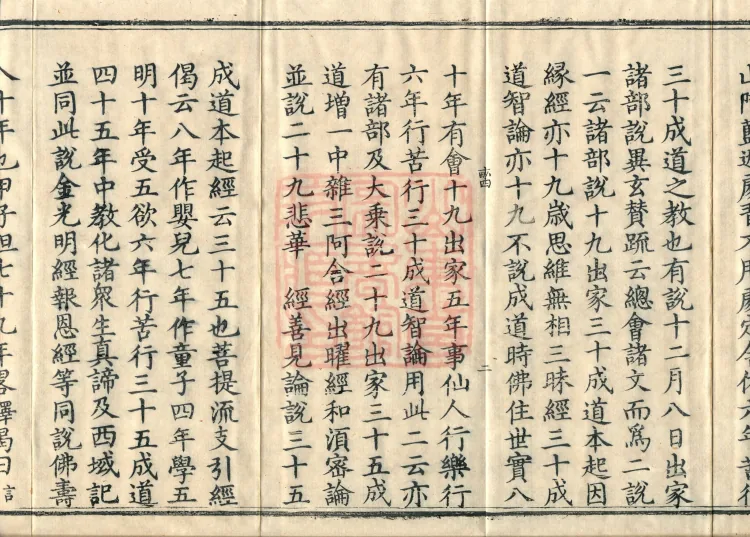 三十成道之教也有說十二月八日出家
諸部說異玄贊疏云總會諸文而爲二說
一云諸部說十九出家三十成道本起因
緣經亦十九歲思維無相三昧經三十成
道智論亦十九不說成道時佛住世實八
二
十年有會十九出家五年事仙人行樂行
六年行苦行三十成道智論用此二云亦
有諸部及大乘說二十九出家三十五成
道增一中雜三阿含經出曜經和湏蜜論
並說二十九悲華　經善見論說三十五
成道本起經云三十五也菩提流支引經
偈云八年作嬰兒七年作童子四年學五
明十年受五欲六年行苦行三十五成道
四十五年中教化諸眾生真諦及西域記
並同此說金光明經報恩經等同說佛壽
八十年也甲子但七十九年畧釋偈曰
言